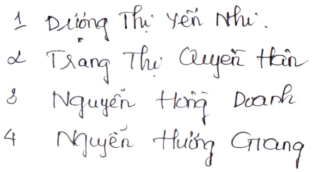 1 Dương Thị Yến Nhi.
2 Trang Thị Quyền Hân
3 Nguyễn Hồng Doanh
4 Nguyễn Hương Giang